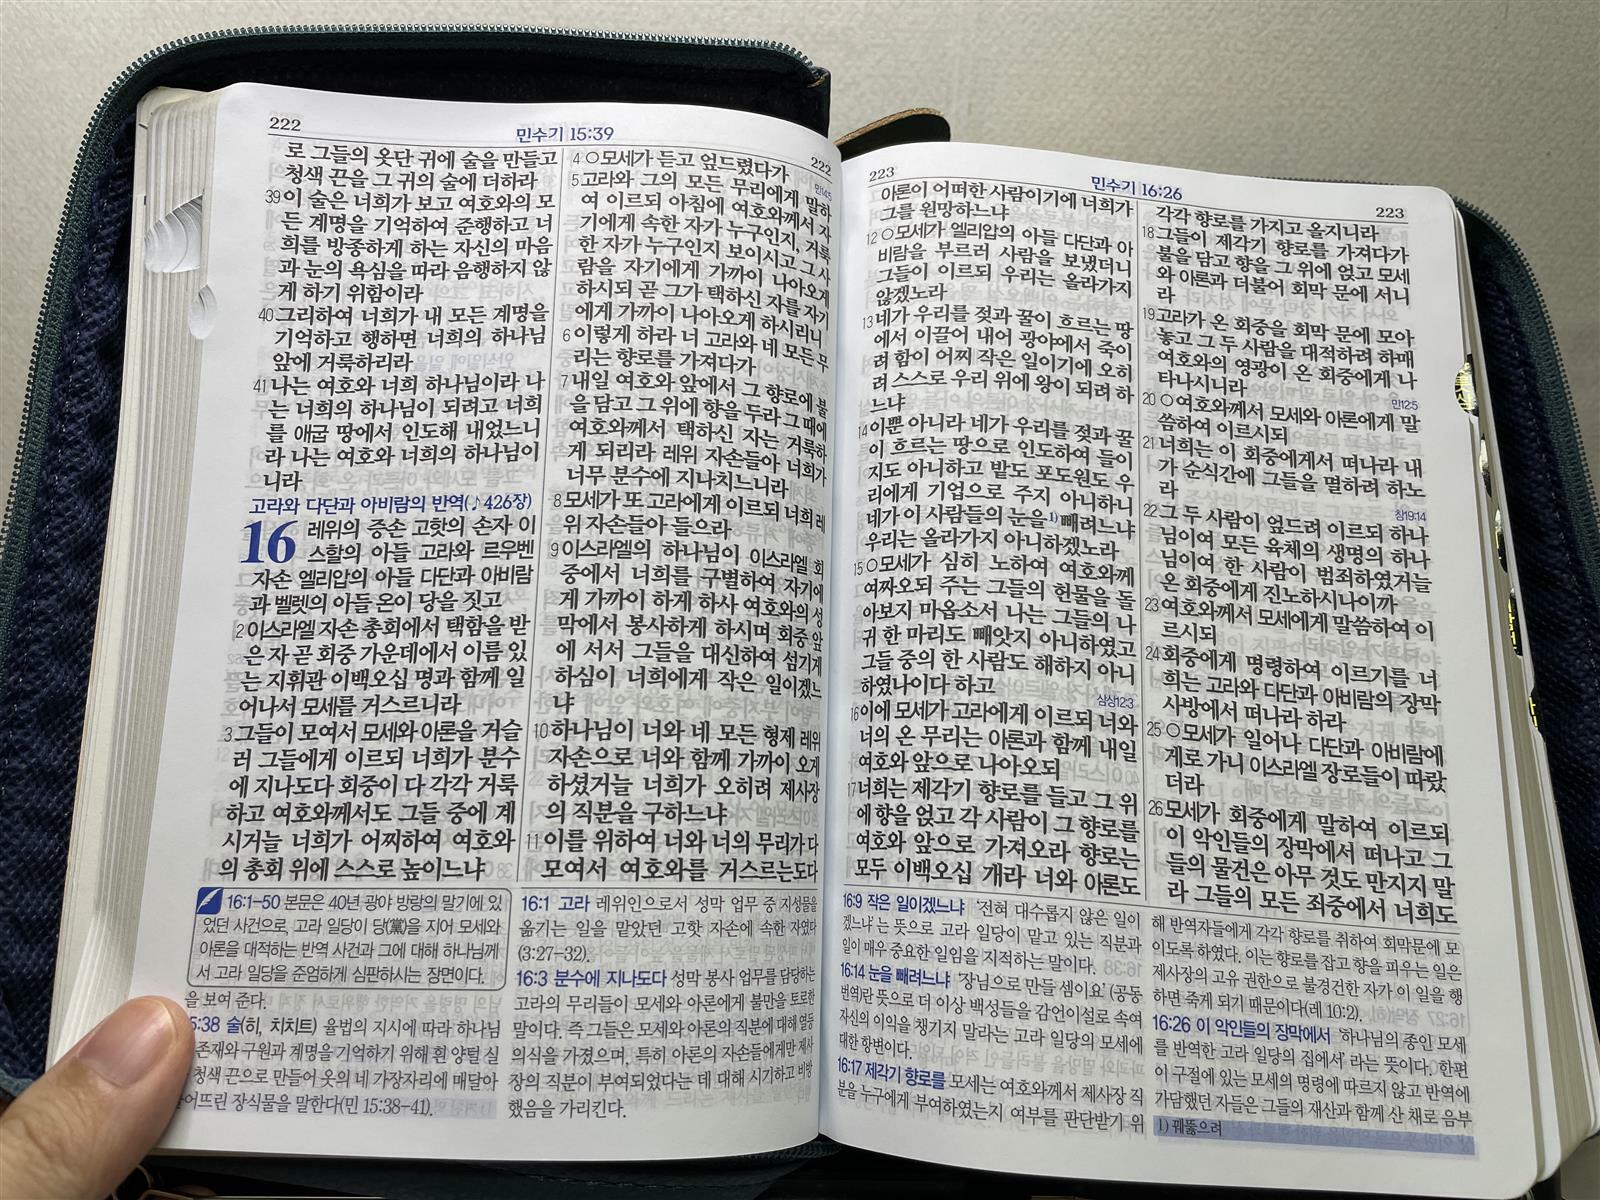 222
민수기 15:39
222
로 그들의 옷단 귀에 술을 만들고
청색 끈을 그 귀의 술에 더하라
39 이 술은 너희가 보고 여호와의 모
든 계명을 기억하여 준행하고 너
희를 방종하게 하는 자신의 마음
과 눈의 욕심을 따라 음행하지 않
게 하기 위함이라
40 그리하여 너희가 내 모든 계명을
기억하고 행하면 너희의 하나님
앞에 거룩하리라
41 나는 여호와 너희 하나님이라 나
는 너희의 하나님이 되려고 너희
를 애굽 땅에서 인도해 내었느니
라 나는 여호와 너희의 하나님이
니라
고라와 다단과 아비람의 반역(♪426장)
16 레위의 증손 고핫의 손자 이
스할의 아들 고라와 르우벤
자손 엘리압의 아들 다단과 아비람
과 벨렛의 아들 온이 당을 짓고
2 이스라엘 자손 총회에서 택함을 받
은 자 곧 회중 가운데에서 이름 있
는 지휘관 이백오십 명과 함께 일
어나서 모세를 거스르니라
3 그들이 모여서 모세와 아론을 거슬
러 그들에게 이르되 너희가 분수
에 지나도다 회중이 다 각각 거룩
하고 여호와께서도 그들 중에 계
시거늘 너희가 어찌하여 여호와
의 총회 위에 스스로 높이느냐
4 ○모세가 듣고 엎드렸다가
민14:5
5 고라와 그의 모든 무리에게 말하
여 이르되 아침에 여호와께서 자
기에게 속한 자가 누구인지, 거룩
한 자가 누구인지 보이시고 그 사
람을 자기에게 가까이 나아오게
하시되 곧 그가 택하신 자를 자기
에게 가까이 나아오게 하시리니
6 이렇게 하라 너 고라와 네 모든 무
리는 향로를 가져다가
7 내일 여호와 앞에서 그 향로에 불
을 담고 그 위에 향을 두라 그 때에
여호와께서 택하신 자는 거룩하
게 되리라 레위 자손들아 너희가
너무 분수에 지나치느니라
8 모세가 또 고라에게 이르되 너희 레
위 자손들아 들으라
9 이스라엘의 하나님이 이스라엘 회
중에서 너희를 구별하여 자기에
게 가까이 하게 하사 여호와의 성
막에서 봉사하게 하시며 회중 앞
에 서서 그들을 대신하여 섬기게
하심이 너희에게 작은 일이겠느
냐
10 하나님이 너와 네 모든 형제 레위
자손으로 너와 함께 가까이 오게
하셨거늘 너희가 오히려 제사장
의 직분을 구하느냐
11 이를 위하여 너와 너의 무리가 다
모여서 여호와를 거스르는도다
16:1-50 본문은 40년 광야 방랑의 말기에 있
었던 사건으로, 고라 일당이 당(黨)을 지어 모세와
아론을 대적하는 반역 사건과 그에 대해 하나님께
서 고라 일당을 준엄하게 심판하시는 장면이다.
을 보여 준다.
5:38 술(히, 치치트) 율법의 지시에 따라 하나님
존재와 구원과 계명을 기억하기 위해 흰 양털 실
청색 끈으로 만들어 옷의 네 가장자리에 매달아
어뜨린 장식물을 말한다(민 15:38-41).
16:1 고라 레위인으로서 성막 업무 중 지성물을
옮기는 일을 맡았던 고핫 자손에 속한 자였다
(3:27-32).
16:3 분수에 지나도다 성막 봉사 업무를 담당하는
고라의 무리들이 모세와 아론에게 불만을 토로한
말이다. 즉 그들은 모세와 아론의 직분에 대해 열등
의식을 가졌으며, 특히 아론의 자손들에게만 제사
장의 직분이 부여되었다는 데 대해 시기하고 비방
했음을 가리킨다.
223
민수기 16:26
223
아론이 어떠한 사람이기에 너희가
그를 원망하느냐
12 ○모세가 엘리압의 아들 다단과 아
비람을 부르러 사람을 보냈더니
그들이 이르되 우리는 올라가지
않겠노라
13 네가 우리를 젖과 꿀이 흐르는 땅
에서 이끌어 내어 광야에서 죽이
려 함이 어찌 작은 일이기에 오히
려 스스로 우리 위에 왕이 되려 하
느냐
14 이뿐 아니라 네가 우리를 젖과 꿀
이 흐르는 땅으로 인도하여 들이
지도 아니하고 밭도 포도원도 우
리에게 기업으로 주지 아니하니
네가 이 사람들의 눈을 1)빼려느냐
우리는 올라가지 아니하겠노라
15 ○모세가 심히 노하여 여호와께
여짜오되 주는 그들의 헌물을 돌
아보지 마옵소서 나는 그들의 나
귀 한 마리도 빼앗지 아니하였고
그들 중의 한 사람도 해하지 아니
하였나이다 하고
삼상12:3
16 이에 모세가 고라에게 이르되 너와
너의 온 무리는 아론과 함께 내일
여호와 앞으로 나아오되
17 너희는 제각기 향로를 들고 그 위
에 향을 얹고 각 사람이 그 향로를
여호와 앞으로 가져오라 향로는
모두 이백오십 개라 너와 아론도
각각 향로를 가지고 올지니라
18 그들이 제각기 향로를 가져다가
불을 담고 향을 그 위에 얹고 모세
와 아론과 더불어 회막 문에 서니
라
19 고라가 온 회중을 회막 문에 모아
놓고 그 두 사람을 대적하려 하매
여호와의 영광이 온 회중에게 나
타나시니라
민12:5
20 ○여호와께서 모세와 아론에게 말
씀하여 이르시되
21 너희는 이 회중에게서 떠나라 내
가 순식간에 그들을 멸하려 하노
라
창19:14
22 그 두 사람이 엎드려 이르되 하나
님이여 모든 육체의 생명의 하나
님이여 한 사람이 범죄하였거늘
온 회중에게 진노하시나이까
23 여호와께서 모세에게 말씀하여 이
르시되
24 회중에게 명령하여 이르기를 너
희는 고라와 다단과 아비람의 장막
사방에서 떠나라 하라
25 ○모세가 일어나 다단과 아비람에
게로 가니 이스라엘 장로들이 따랐
더라
26 모세가 회중에게 말하여 이르되
이 악인들의 장막에서 떠나고 그
들의 물건은 아무 것도 만지지 말
라 그들의 모든 죄중에서 너희도
16:9 작은 일이겠느냐 '전혀 대수롭지 않은 일이
겠느냐'는 뜻으로 고라 일당이 맡고 있는 직분과
일이 매우 중요한 일임을 지적하는 말이다.
16:14 눈을 빼려느냐 '장님으로 만들 셈이요'(공동
번역)란 뜻으로 더 이상 백성들을 감언이설로 속여
자신의 이익을 챙기지 말라는 고라 일당의 모세에
대한 항변이다.
16:17 제각기 향로를 모세는 여호와께서 제사장 직
분을 누구에게 부여하였는지 여부를 판단받기 위
해 반역자들에게 각각 향로를 취하여 회막문에 모
이도록 하였다. 이는 향로를 잡고 향을 피우는 일은
제사장의 고유 권한으로 불경건한 자가 이 일을 행
하면 죽게 되기 때문이다(레 10:2).
16:26 이 악인들의 장막에서 '하나님의 종인 모세
를 반역한 고라 일당의 집에서'라는 뜻이다. 한편
이 구절에 있는 모세의 명령에 따르지 않고 반역에
가담했던 자들은 그들의 재산과 함께 산 채로 음부
1) 꿰뚫으려